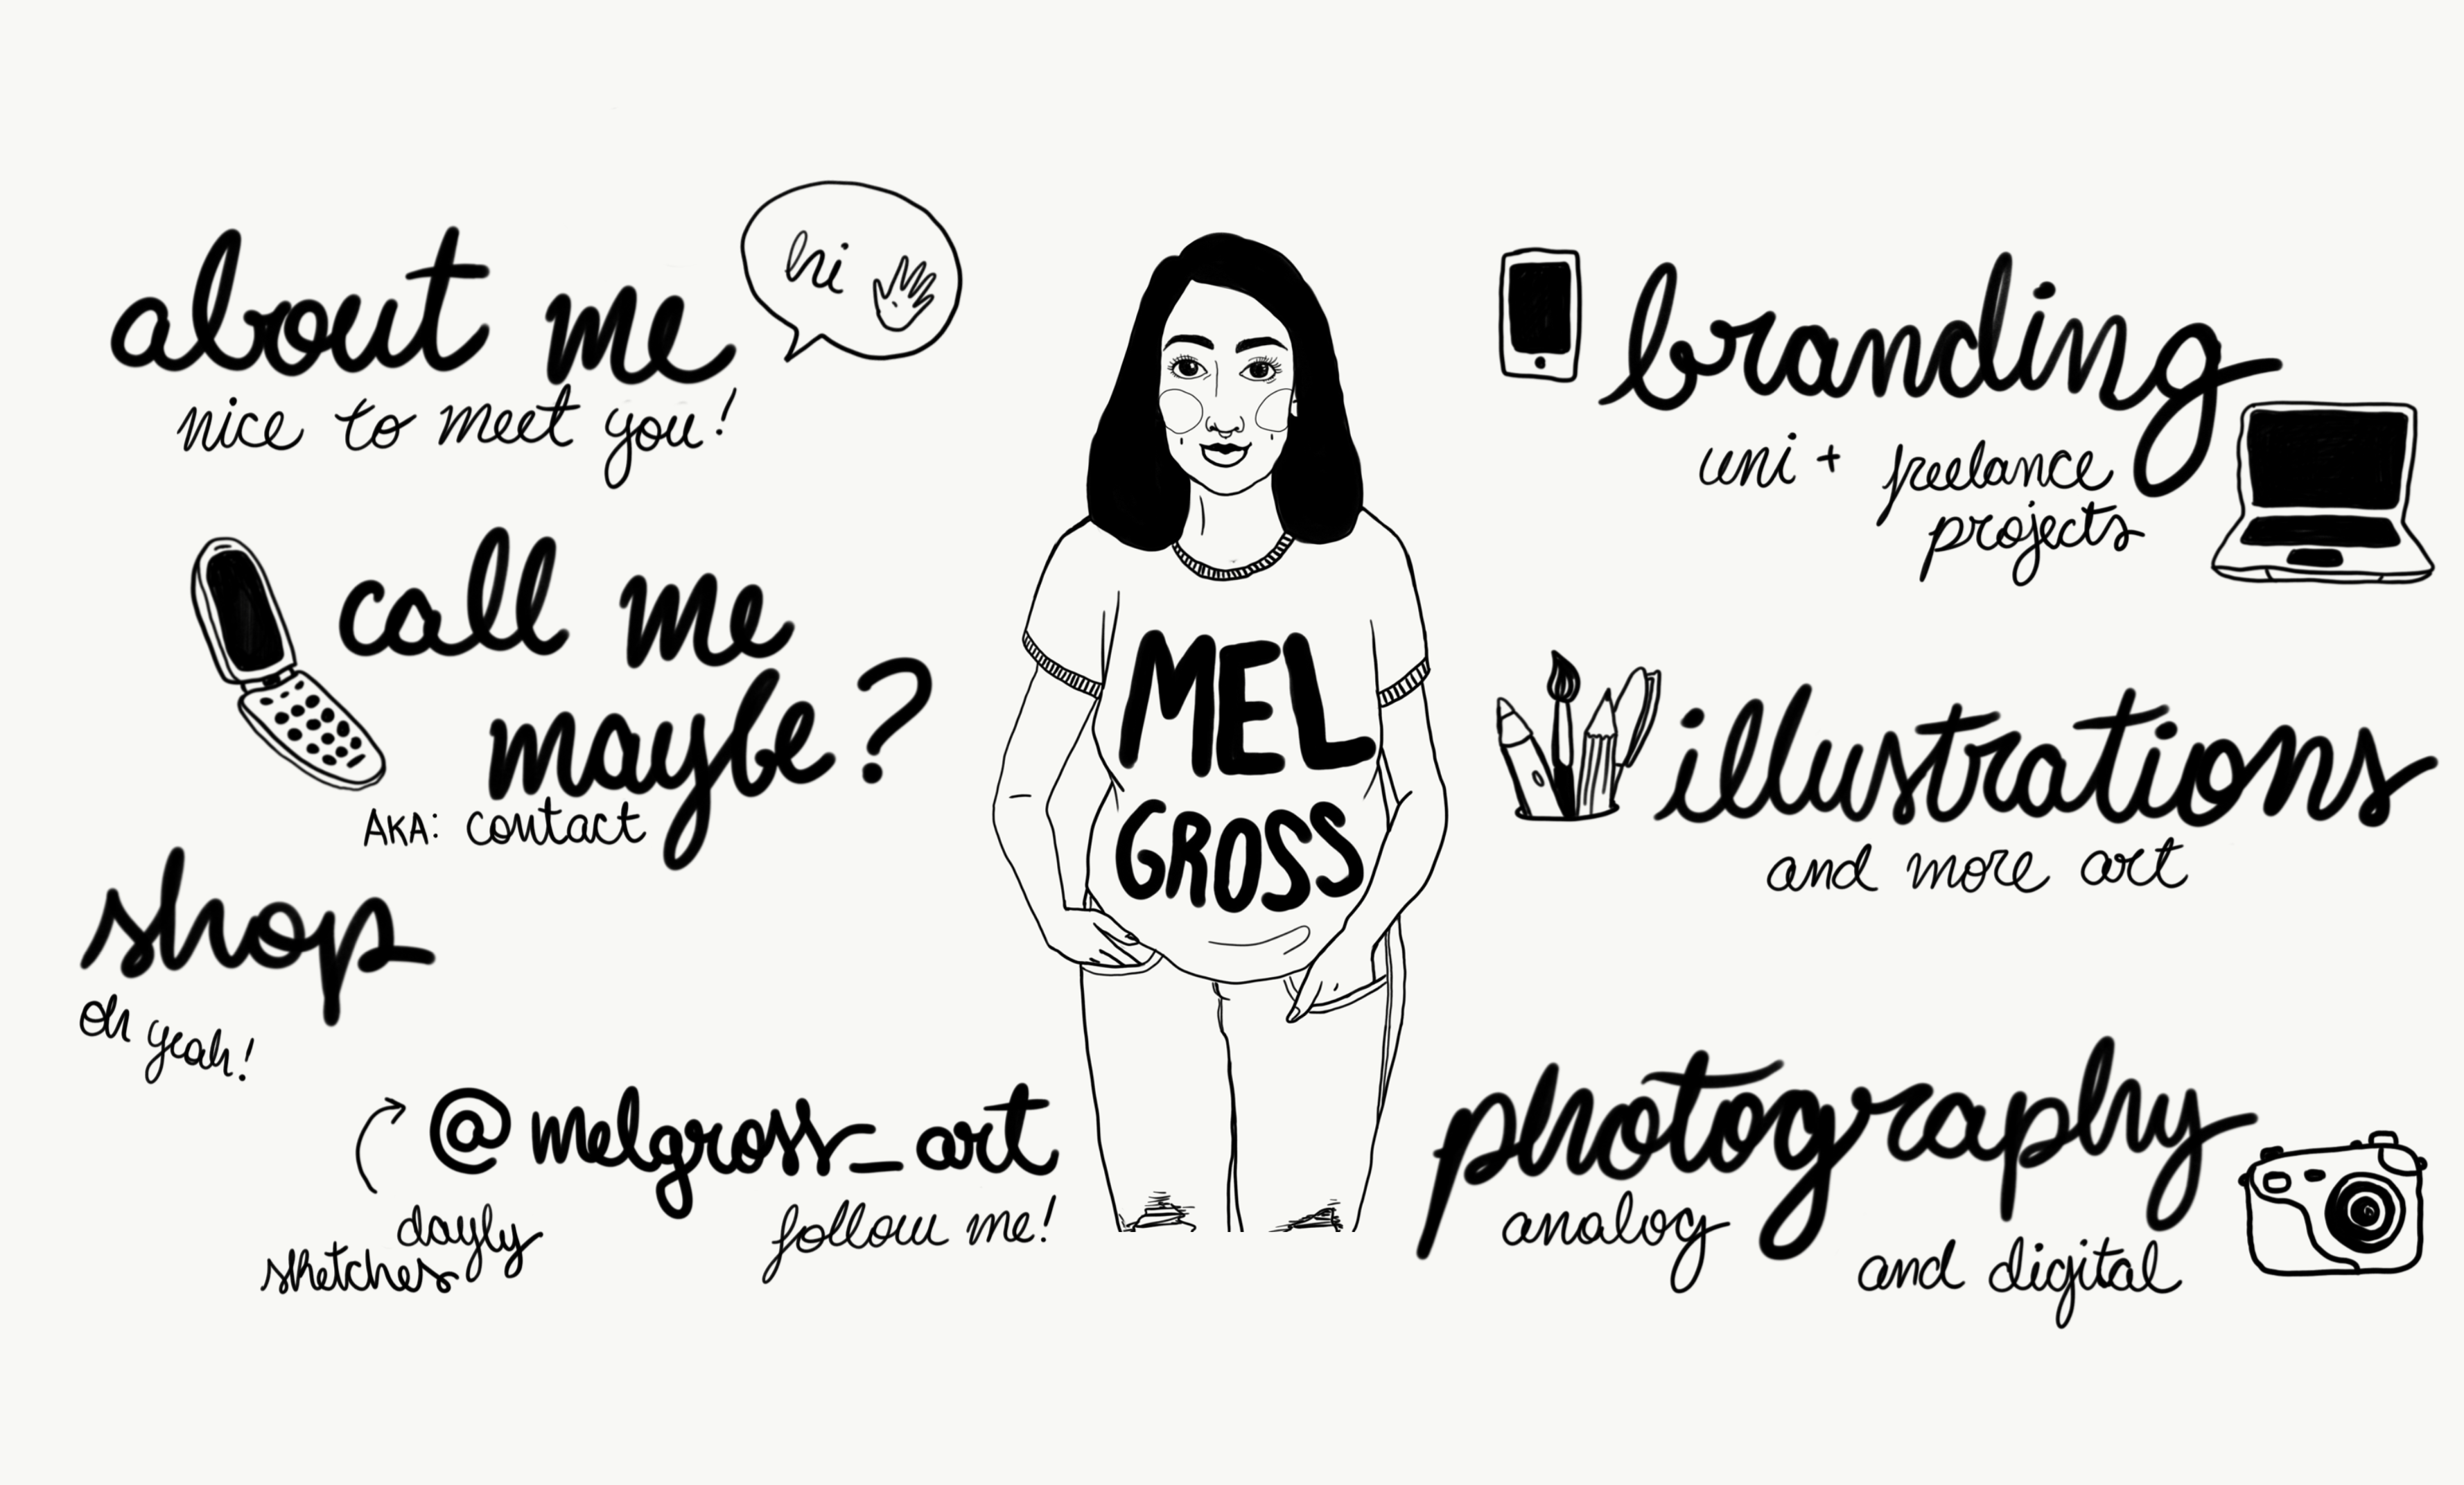 about me
hi
nice to meet you!
call me
maybe?
AKA: contact
shop
oh yeah!
@melgross_art
dayly
sketches
follow me!
MEL
GROSS
branding
uni + freelance
projects
illustrations
and more art
photography
analog
and digital